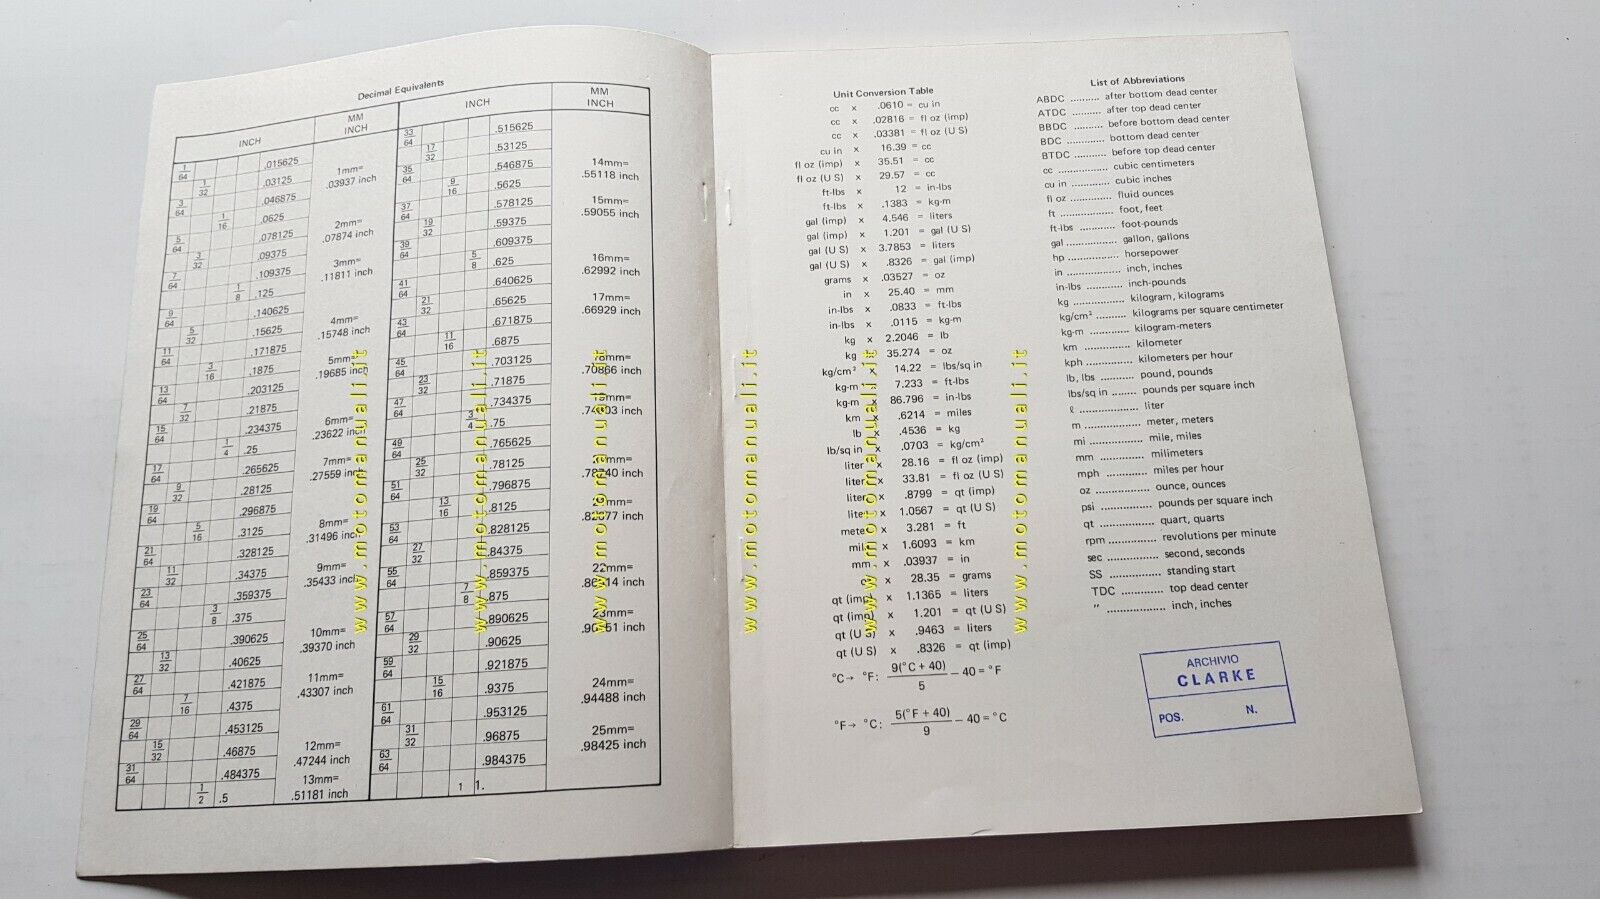 Decimal Equivalents
INCH
MM
INCH
1/64 .015625
1/32 .03125
1mm=
.03937 inch
3/64 .046875
1/16 .0625
2mm=
.07874 inch
5/64 .078125
3/32 .09375
3mm=
.11811 inch
7/64 .109375
1/8 .125
9/64 .140625
5/32 .15625
4mm=
.15748 inch
11/64 .171875
3/16 .1875
5mm=
.19685 inch
13/64 .203125
7/32 .21875
15/64 .234375
6mm=
.23622 inch
1/4 .25
17/64 .265625
7mm=
.27559 inch
9/32 .28125
19/64 .296875
5/16 .3125
8mm=
.31496 inch
21/64 .328125
11/32 .34375
9mm=
.35433 inch
23/64 .359375
3/8 .375
25/64 .390625
10mm=
.39370 inch
13/32 .40625
27/64 .421875
11mm=
.43307 inch
7/16 .4375
29/64 .453125
15/32 .46875
12mm=
.47244 inch
31/64 .484375
1/2 .5
13mm=
.51181 inch
INCH
MM
INCH
33/64 .515625
17/32 .53125
35/64 .546875
14mm=
.55118 inch
9/16 .5625
37/64 .578125
15mm=
.59055 inch
19/32 .59375
39/64 .609375
5/8 .625
16mm=
.62992 inch
41/64 .640625
21/32 .65625
17mm=
.66929 inch
43/64 .671875
11/16 .6875
45/64 .703125
18mm=
.70866 inch
23/32 .71875
47/64 .734375
19mm=
inch
3/4 .75
49/64 .765625
25/32 .78125
inch
51/64 .796875
13/16 .8125
inch
53/64 .828125
27/32 .84375
55/64 .859375
22mm=
inch
7/8 .875
57/64 .890625
23mm=
inch
29/32 .90625
59/64 .921875
15/16 .9375
24mm=
.94488 inch
61/64 .953125
31/32 .96875
25mm=
.98425 inch
63/64 .984375
1 1.
Unit Conversion Table
cc x .0610 = cu in
cc x .02816 = fl oz (imp)
cc x .03381 = fl oz (U S)
cu in x 16.39 = cc
fl oz (imp) x 35.51 = cc
fl oz (U S) x 29.57 = cc
ft-lbs x 12 = in-lbs
ft-lbs x .1383 = kg-m
gal (imp) x 4.546 = liters
gal (imp) x 1.201 = gal (U S)
gal (U S) x 3.7853 = liters
gal (U S) x .8326 = gal (imp)
grams x .03527 = oz
in x 25.40 = mm
in-lbs x .0833 = ft-lbs
in-lbs x .0115 = kg-m
kg x 2.2046 = lb
kg x 35.274 = oz
kg/cm² x 14.22 = lbs/sq in
kg-m x 7.233 = ft-lbs
kg-m x 86.796 = in-lbs
km x .6214 = miles
lb x .4536 = kg
lb/sq in x .0703 = kg/cm²
liter x 28.16 = fl oz (imp)
liter x 33.81 = fl oz (U S)
liter x .8799 = qt (imp)
liter x 1.0567 = qt (U S)
meter x 3.281 = ft
mile x 1.6093 = km
mm x .03937 = in
oz x 28.35 = grams
qt (imp) x 1.1365 = liters
qt (imp) x 1.201 = qt (U S)
qt (U S) x .9463 = liters
qt (U S) x .8326 = qt (imp)
°C→ °F: 9(°C + 40)/5 − 40 = °F
°F→ °C: 5(°F + 40)/9 − 40 = °C
List of Abbreviations
ABDC .......... after bottom dead center
ATDC .......... after top dead center
BBDC .......... before bottom dead center
BDC ............. bottom dead center
BTDC ........... before top dead center
cc ................. cubic centimeters
cu in ............. cubic inches
fl oz .............. fluid ounces
ft .................. foot, feet
ft-lbs ............ foot-pounds
gal ................ gallon, gallons
hp ................. horsepower
in .................. inch, inches
in-lbs ............ inch-pounds
kg ................. kilogram, kilograms
kg/cm² .......... kilograms per square centimeter
kg-m ............. kilogram-meters
km ................ kilometer
kph ............... kilometers per hour
lb, lbs ........... pound, pounds
lbs/sq in ........ pounds per square inch
ℓ ................... liter
m .................. meter, meters
mi ................. mile, miles
mm ............... milimeters
mph .............. miles per hour
oz ................. ounce, ounces
psi ................ pounds per square inch
qt ................. quart, quarts
rpm ............... revolutions per minute
sec ................ second, seconds
SS ................. standing start
TDC ............. top dead center
" .................. inch, inches
ARCHIVIO
CLARKE
POS. N.
www.motomanuali.it
www.motomanuali.it
www.motomanuali.it
www.motomanuali.it
www.motomanuali.it
www.motomanuali.it